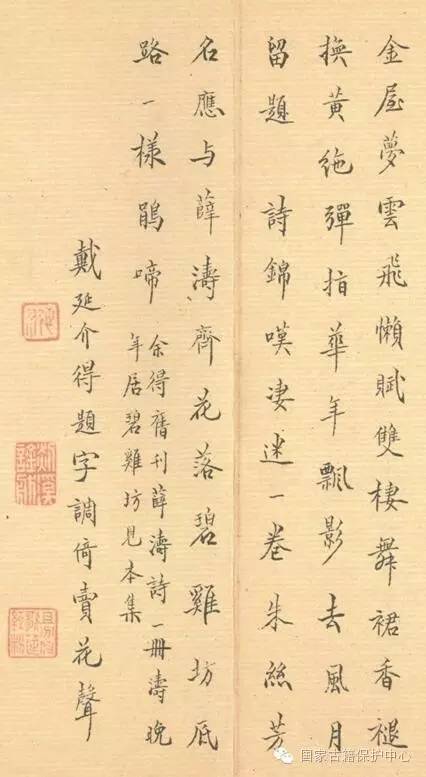 金屋夢雲飛懶賦雙棲舞裙香褪
換黃絁彈指華年飄影去風月
留題　詩錦嘆淒迷一卷朱絲芳
名應与薛濤齊花落碧雞坊底
路一樣鵑啼
余得舊刊薛濤詩一冊濤晚
年居碧雞坊見本集
戴延介得題字調倚賣花聲
国家古籍保护中心